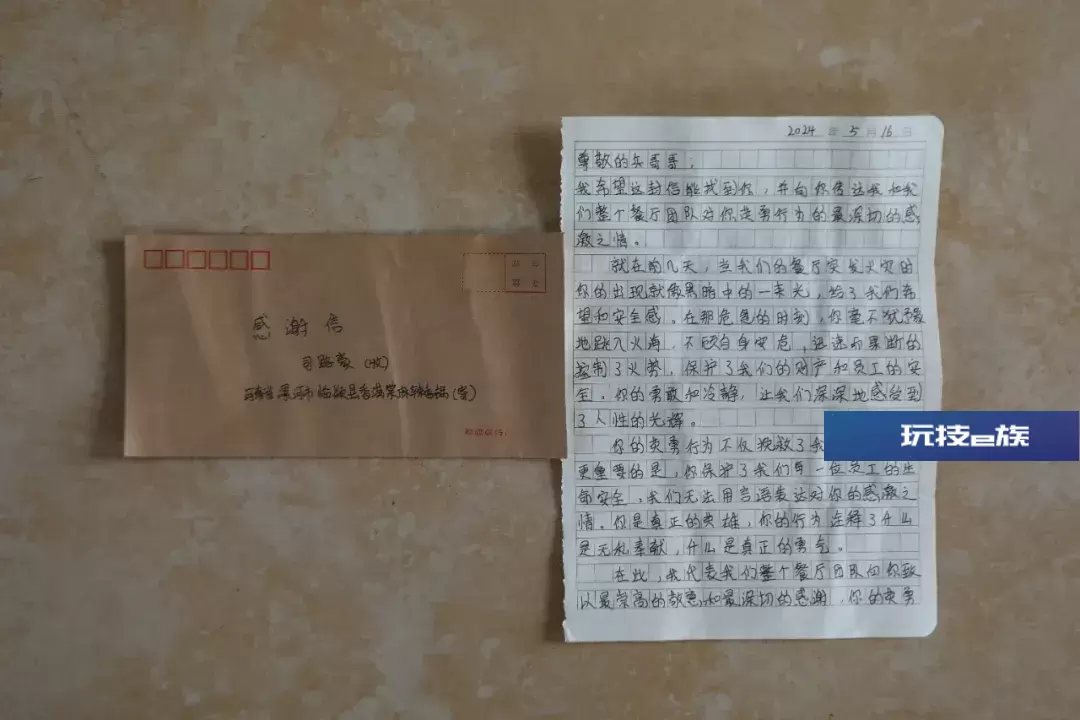 感谢信
司路豪（收）
河南省漯河市临颍县香满棠麻辣香锅（寄）
邮政编码：
2024年5月16日
尊敬的兵哥哥：
我希望这封信能找到你，并向你传达我和我
们整个餐厅团队对你英勇行为的最深切的感
激之情。
就在前几天，当我们的餐厅突发火灾时
你的出现就像黑暗中的一束光，给了我们希
望和安全感。在那危急的时刻，你毫不犹豫
地跳入火海，不顾自身安危，迅速而果断的
控制了火势，保护了我们的财产和员工的安
全。你的勇敢和冷静，让我们深深地感受到
了人性的光辉。
你的英勇行为不仅拯救了我
更重要的是，你保护了我们每一位员工的生
命安全，我们无法用言语表达对你的感激之
情。你是真正的英雄，你的行为诠释了什么
是无私奉献，什么是真正的勇气。
在此，我代表我们整个餐厅团队向你致
以最崇高的敬意和最深切的感谢，你的英勇
玩技e族